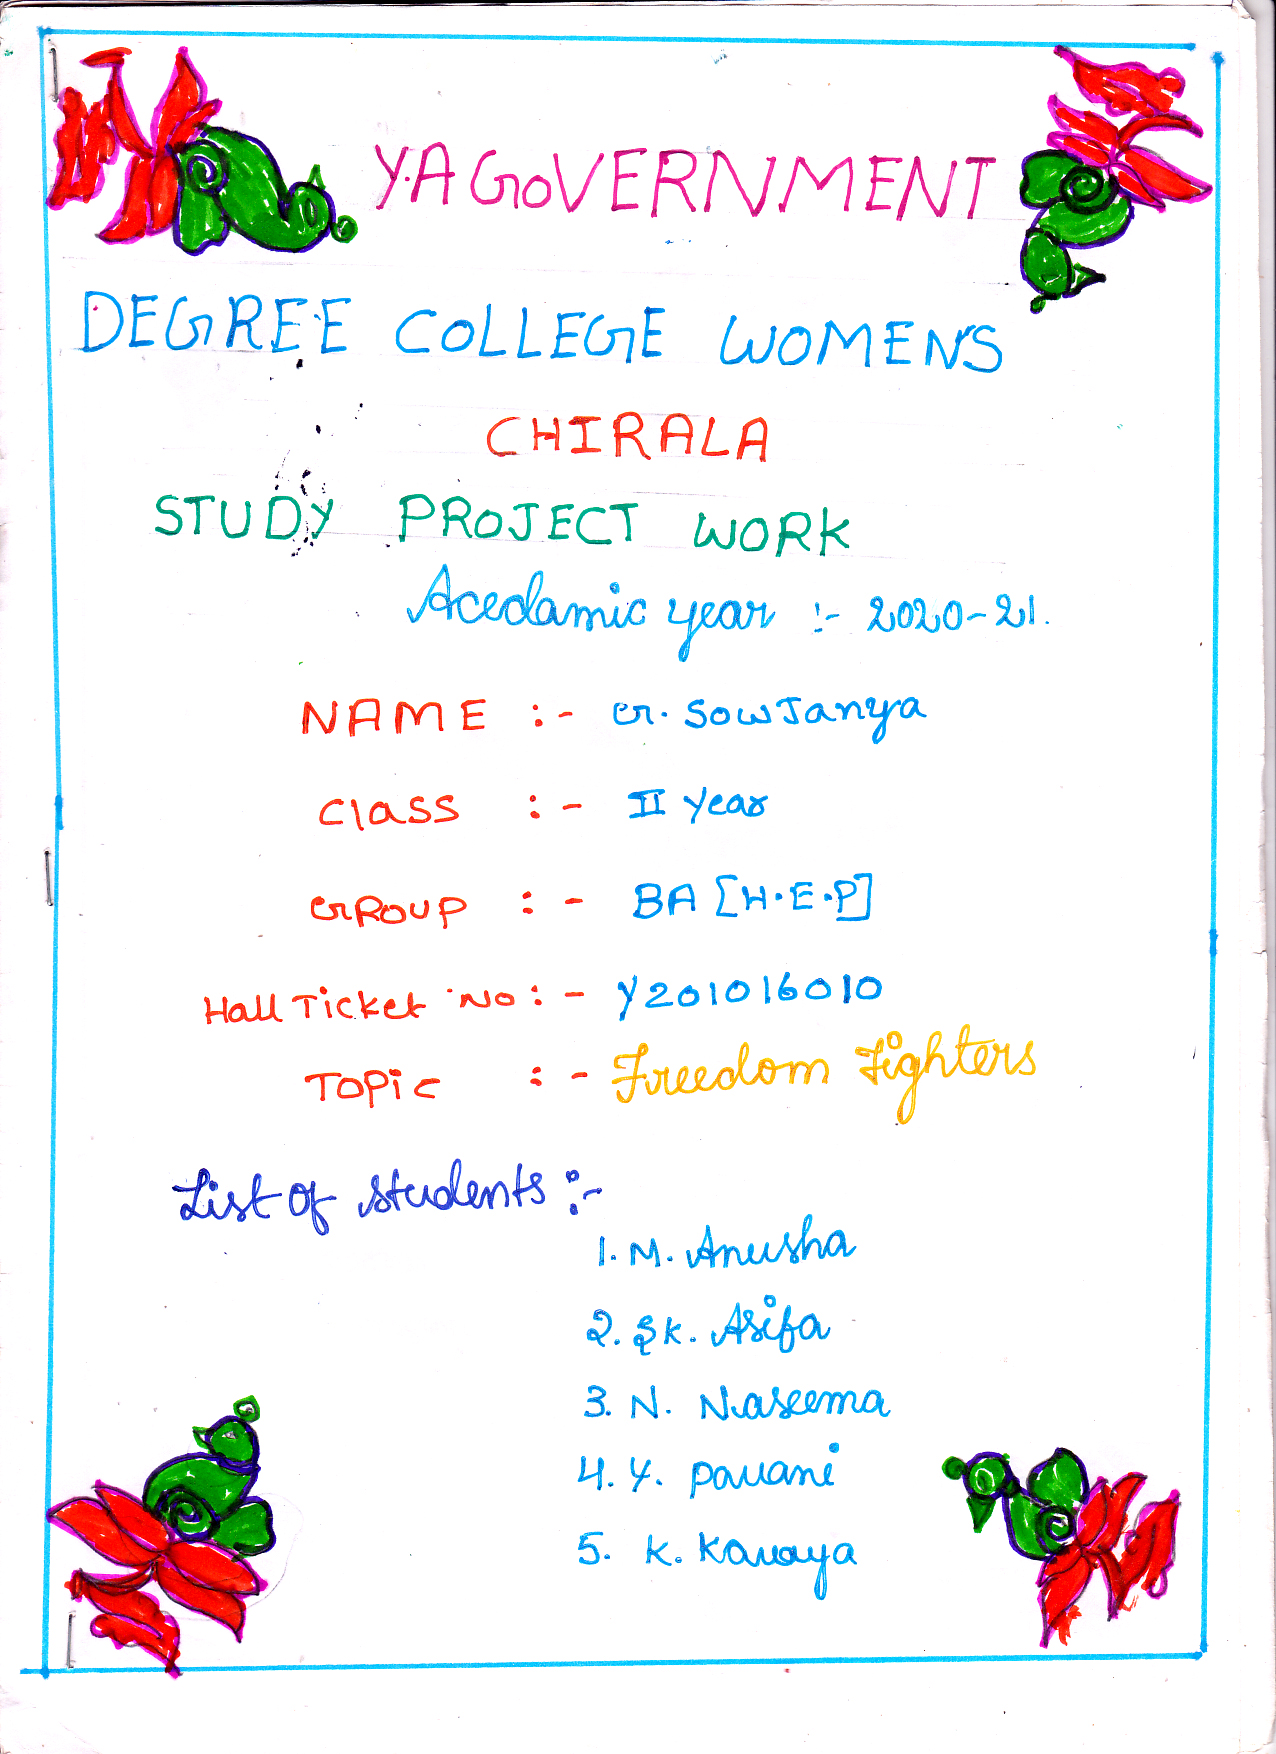 Y.A GOVERNMENT
DEGREE COLLEGE WOMENS
CHIRALA
STUDY PROJECT WORK
Acedamic year :- 2020-21.
NAME :- G. SowJanya
Class :- II year
GROUP :- BA [H.E.P]
Hall Ticket No :- Y201016010
Topic :- Freedom Fighters
List of students :-
1. M. Anusha
2. SK. Asifa
3. N. Naseema
4. Y. Pavani
5. K. Kavaya